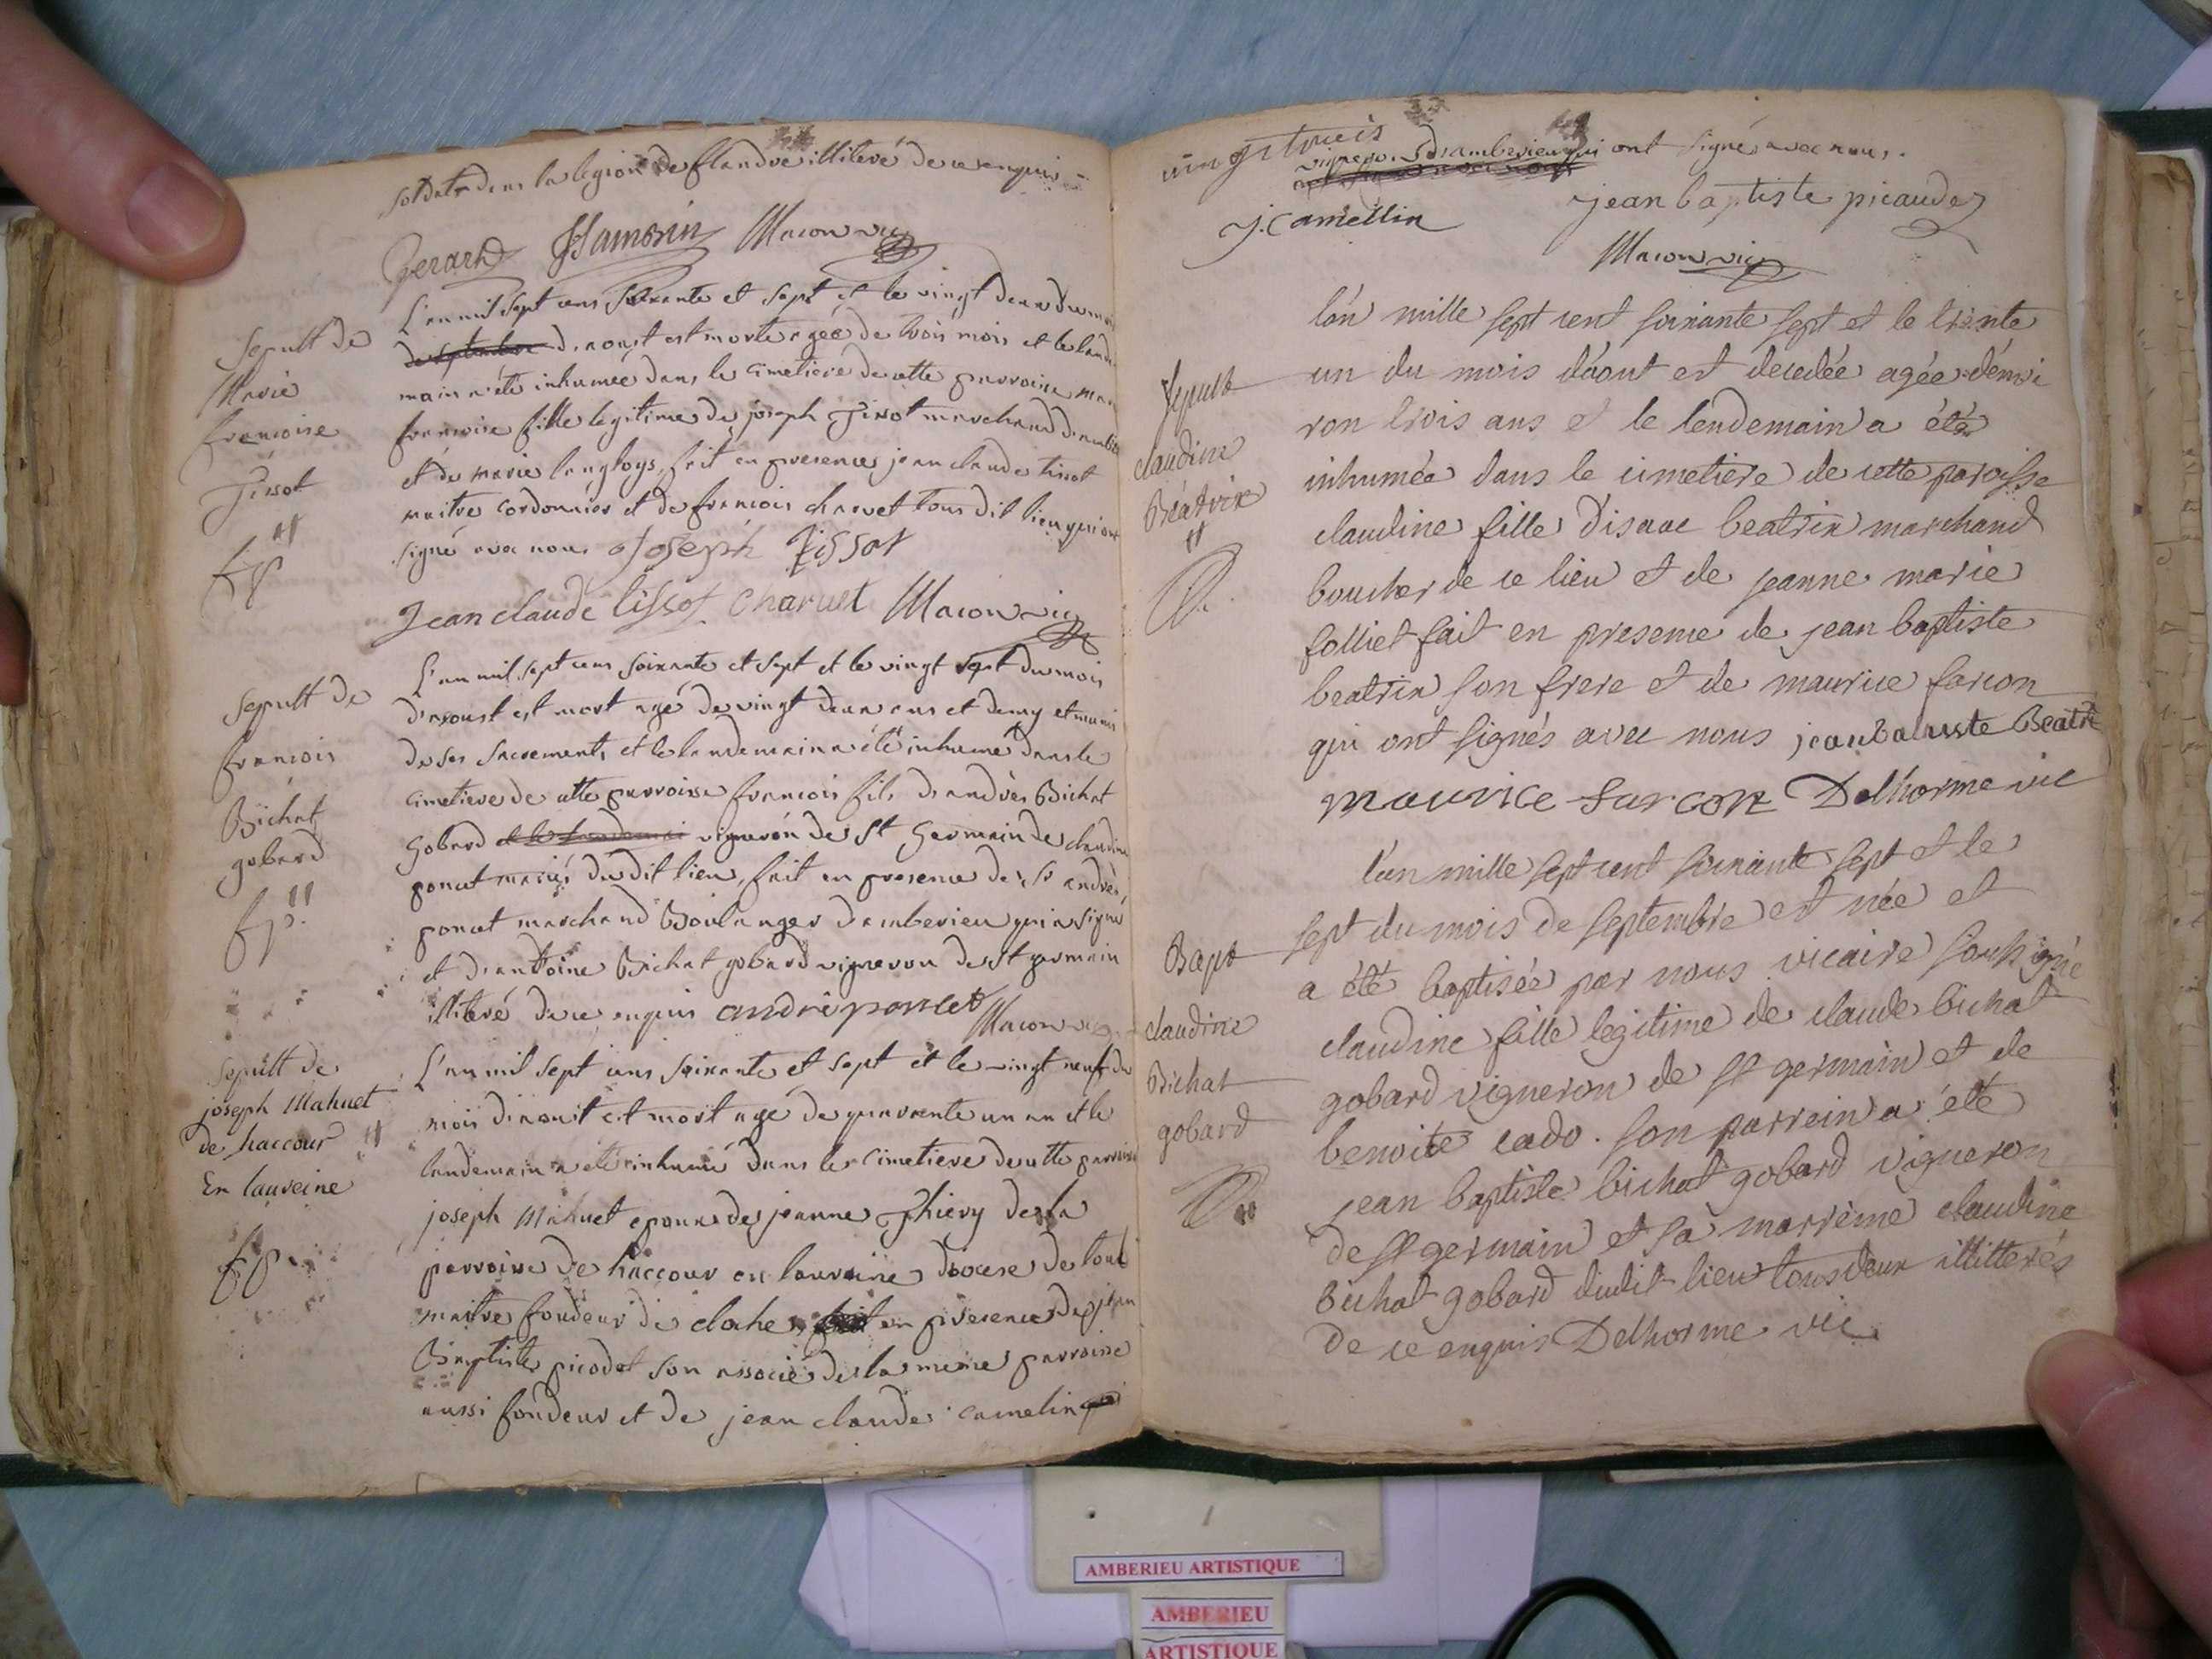 soldat dans la legion de flandre illiteré de ce enquis
Gerard Hamorin Macon vic
L'an mil sept cens soixante et sept et le vingt deux du mois
de septembre d'aoust est morte agée de trois mois et le lande
main a été inhumée dans le cimetiere de cette parroisse marie
francoise fille legitime de joseph Tissot marchand d'ambe
et de marie langloys, fait en presence jean claude tissot
maitre cordonnier et de francois charvet tous dit lieu qui ont
signé avec nous joseph Tissot
Jean claude tissot charvet Macon vic
Sepult de
Marie
francoise
Tissot
L'an mil sept cens soixante et sept et le vingt sept du mois
d'aoust est mort agé de vingt deux ans et demy et muni
de ses sacrements et le landemain a été inhumé dans le
cimetiere de cette parroisse francois fils d'andré Bichat
Gobard vigneron de St Germain de claudine
poncet mariés du dit lieu, fait en presence de sr andré
poncet marchand Boulanger d'amberieu qui a signé
et d'antoine Bichat gobard vigneron de St germain
illiteré de ce enquis andré poncet
Macon vic
Sepult de
francois
Bichat
gobard
L'an mil sept cens soixante et sept et le vingt neuf du
mois d'aoust est mort agé de quarante un an et le
landemain a été inhumé dans le cimetiere de cette parroisse
joseph Mahuet epoux de jeanne Thiery de la
parroisse de haccour en lauraine diocese de toul
maitre fondeur de cloche, fait en presence de jean
Baptiste picodet son associé de la meme parroisse
aussi fondeur et de jean claude camelin
Sepult de
joseph Mahuet
de haccour
En laureine
vingt trois
vignerons d'amberieu qui ont signé avec nous.
J. Camellin jean baptiste picaudez
Macon vic
l'an mille sept cent soixante sept et le trente
un du mois d'août est decedée agée d'envi
ron trois ans et le lendemain a été
inhumée dans le cimetiere de cette paroisse
claudine fille d'isaac beatrix marchand
boucher de ce lieu et de jeanne marie
folliet fait en presence de jean baptiste
beatrix son frere et de maurice farcon
qui ont signés avec nous jean batiste Beatri
maurice farcon Delhorme vic
Sepult
claudine
Béatrix
l'an mille sept cent soixante sept et le
sept du mois de septembre est née et
a été baptisée par nous vicaire soussigné
claudine fille legitime de claude bichat
gobard vigneron de st germain et de
benoite cado. son parrein a été
jean baptiste bichat gobard vigneron
de st germain et sa marreine claudine
bichat gobard dudit lieu tous deux illitterés
de ce enquis Delhorme vic
Bapt
claudine
Bichat
gobard
AMBERIEU ARTISTIQUE
AMBERIEU
ARTISTIQUE